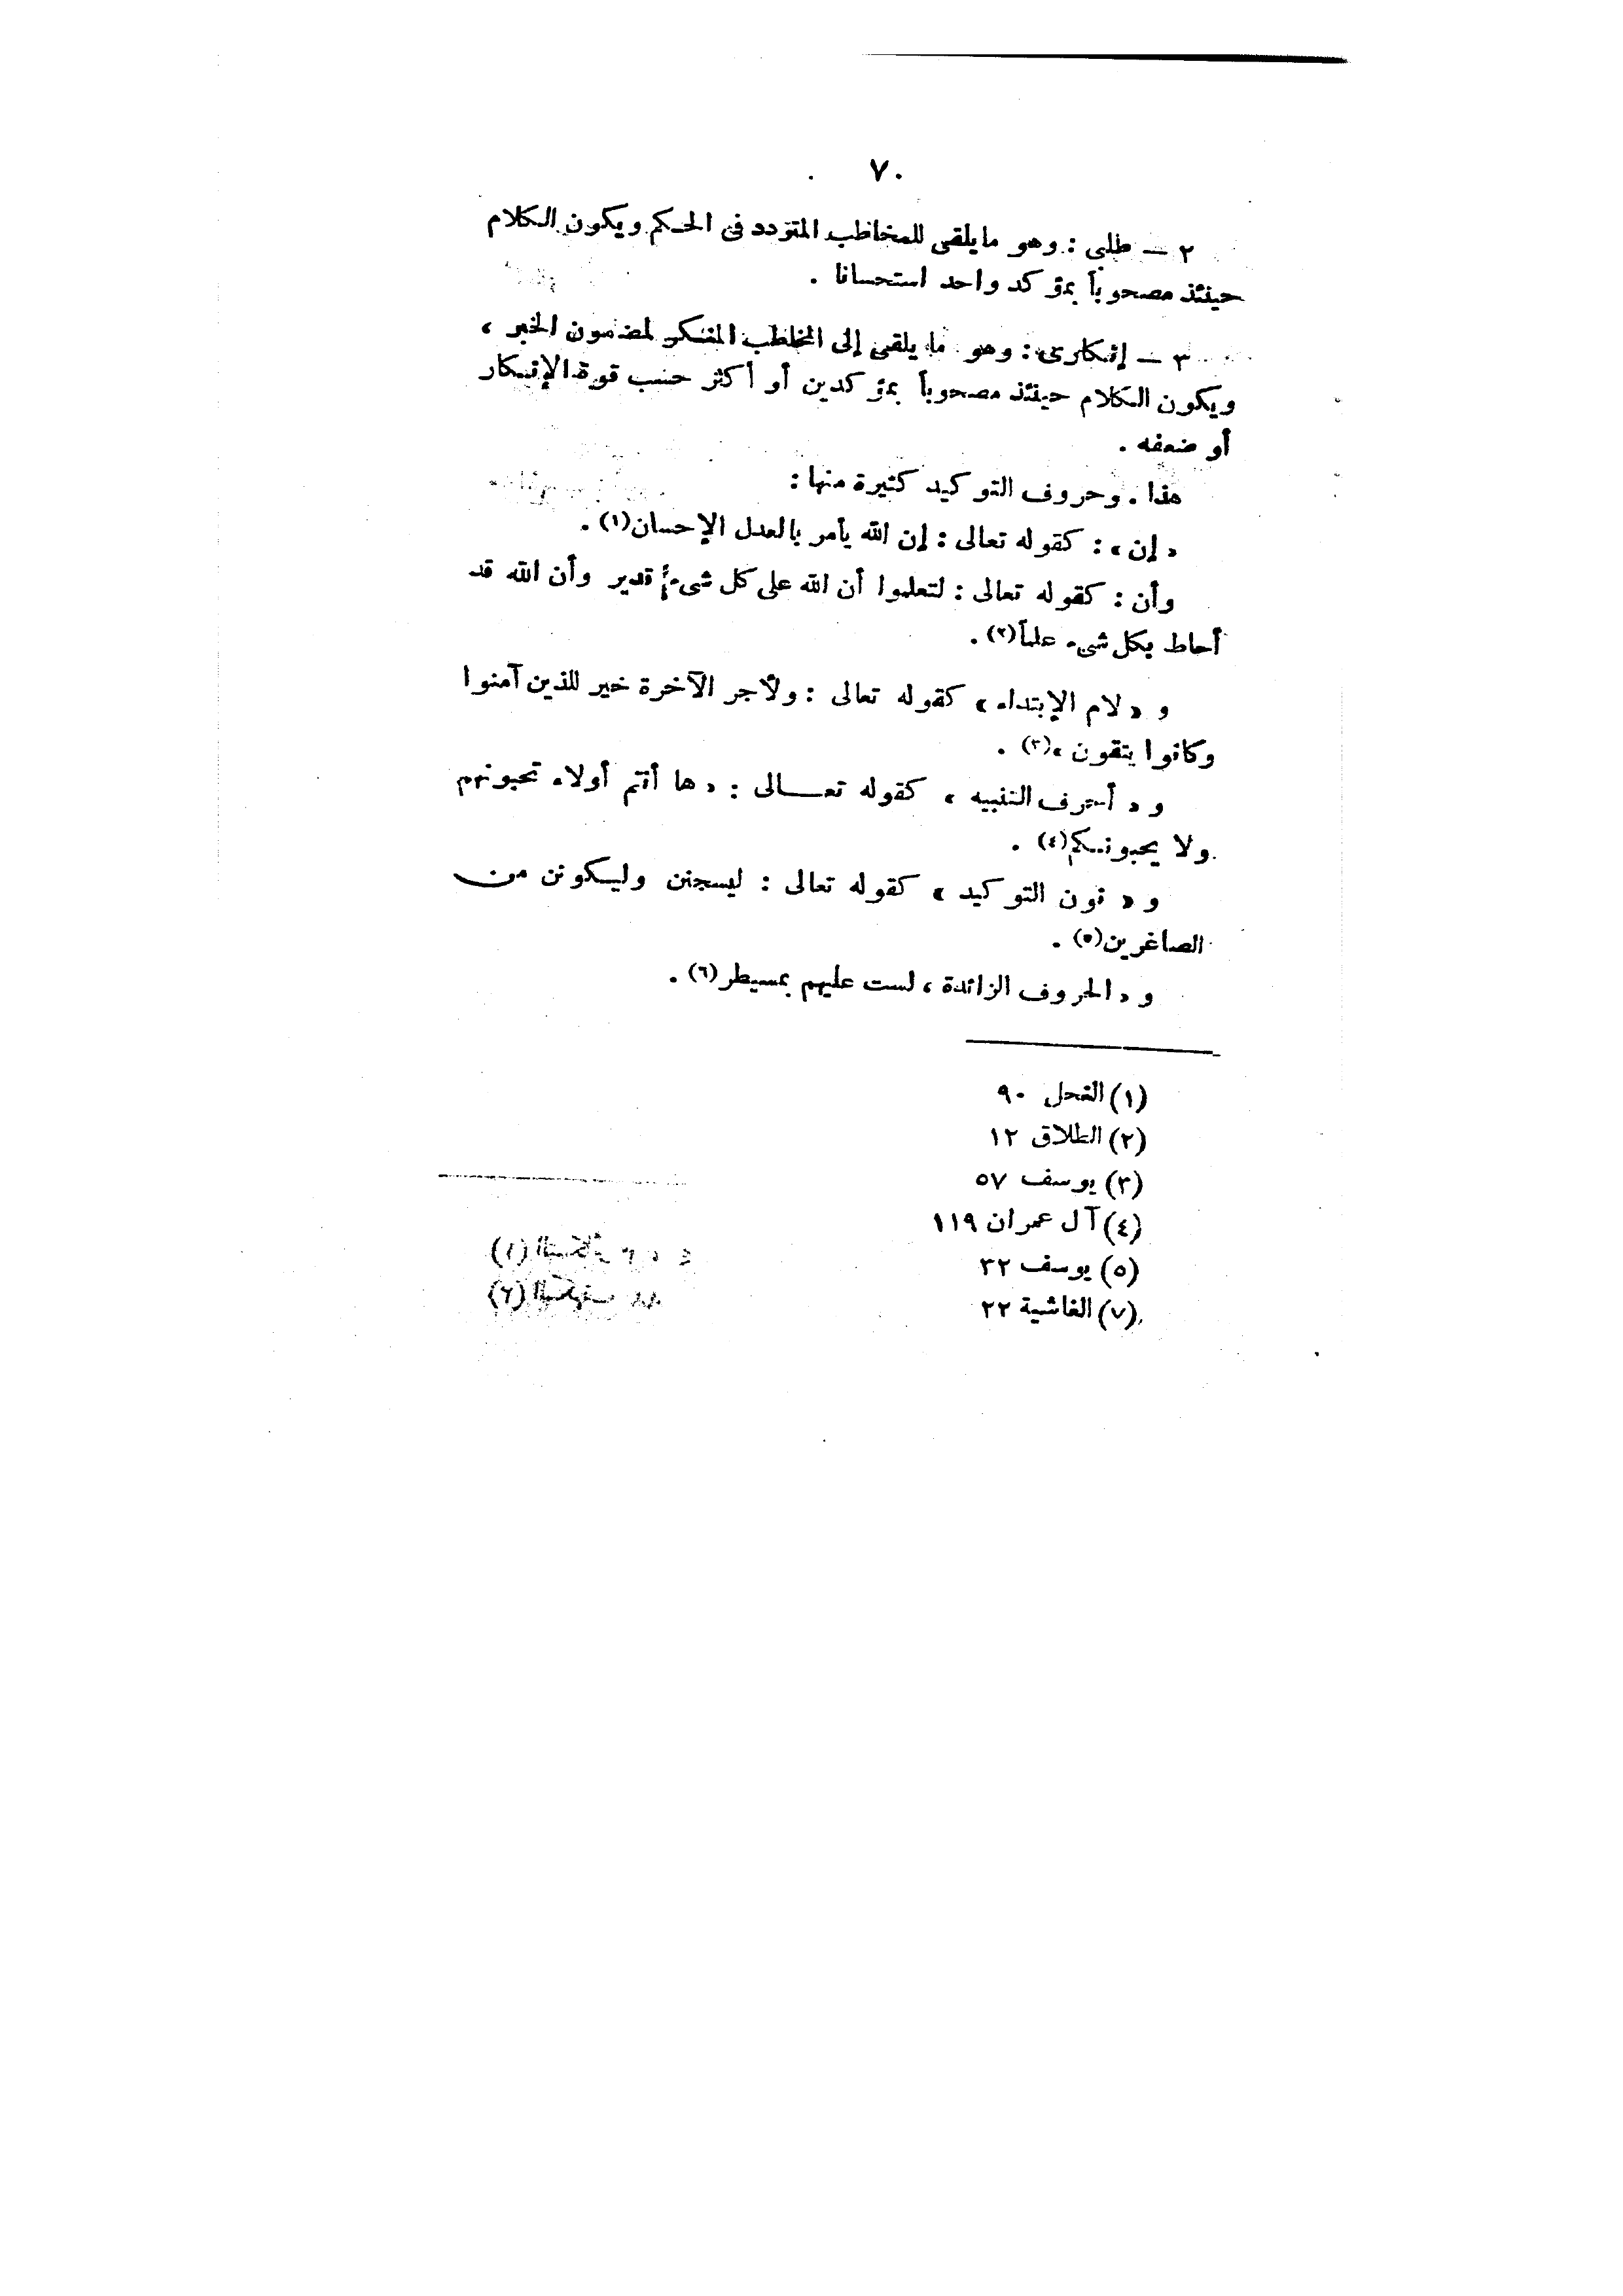 ٧٠
٢ — طلبى : وهو ما يلقى للمخاطب المتردد فى الحكم ويكون الكلام
حينئذ مصحوباً بمؤكد واحد استحسانا .
٣ — إنكارى : وهو ما يلقى إلى المخاطب المنكر لمضمون الخبر ،
ويكون الكلام حينئذ مصحوباً بمؤكدين أو أكثر حسب قوة الإنكار
أو ضعفه .
هذا . وحروف التوكيد كثيرة منها :
« إن » : كقوله تعالى : إن الله يأمر بالعدل الإحسان(١) .
وأن : كقوله تعالى : لتعلموا أن الله على كل شىء قدير وأن الله قد
أحاط بكل شىء علماً(٢) .
و « لام الإبتداء » كقوله تعالى : ولأجر الآخرة خير للذين آمنوا
وكانوا يتقون »(٣) .
و « أحرف التنبيه » كقوله تعــالى : « ها أنتم أولاء تحبونهم
ولا يحبونكم(٤) .
و « نون التوكيد » كقوله تعالى : ليسجنن وليكونن من
الصاغرين(٥) .
و « الحروف الزائدة » لست عليهم بمسيطر(٦) .
(١) النحل ٩٠
(٢) الطلاق ١٢
(٣) يوسف ٥٧
(٤) آل عمران ١١٩
(٥) يوسف ٣٢
(٧) الغاشية ٢٢